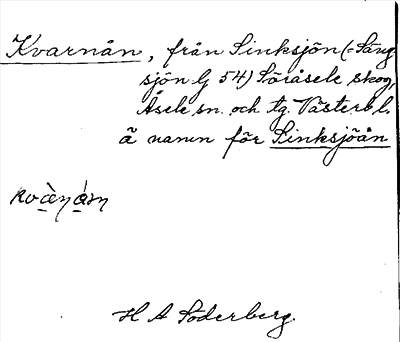 Kvarnån, från Sinksjön (-Säng
sjön G 54) Söråsele skog,
Åsele sn. och tg. Västerb. l.
ä namn för Sinksjöån
H A Söderberg.